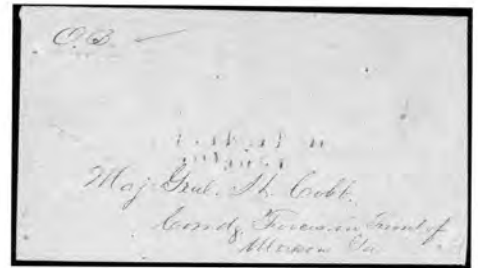 O.B.
Maj. Genl. H. Cobb.
Comdg Forces in Front of
Macon Ga